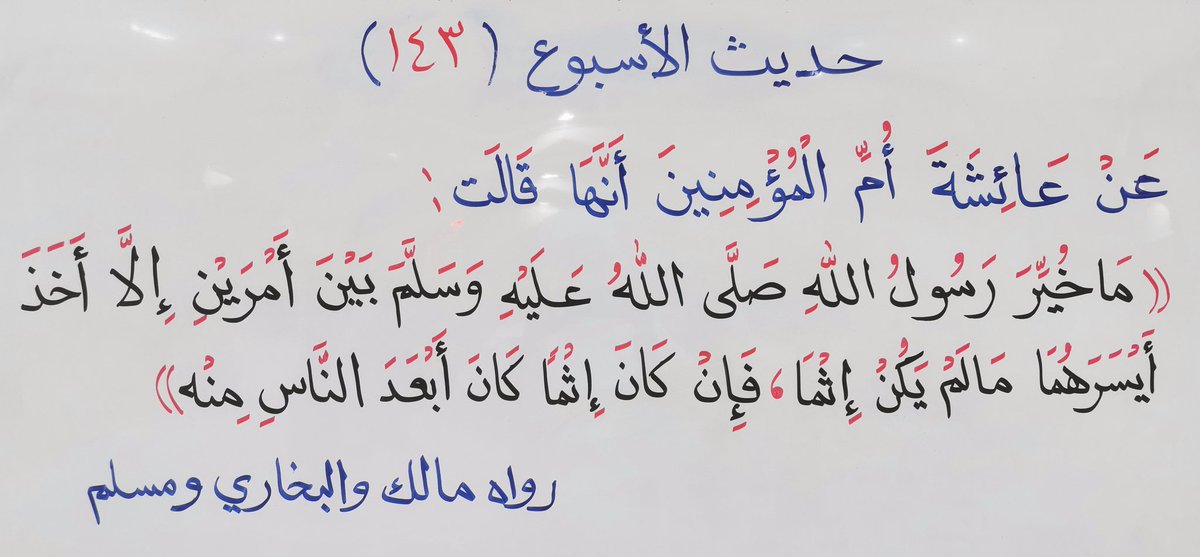 حديث الأسبوع (١٤٣)
عَنْ عَائِشَةَ أُمِّ الْمُؤْمِنِينَ أَنَّهَا قَالَت:
((مَا خُيِّرَ رَسُولُ اللهِ صَلَّى اللهُ عَلَيْهِ وَسَلَّمَ بَيْنَ أَمْرَيْنِ إِلَّا أَخَذَ
أَيْسَرَهُمَا مَالَمْ يَكُنْ إِثْمًا، فَإِنْ كَانَ إِثْمًا كَانَ أَبْعَدَ النَّاسِ مِنْه))
رواه مالك والبخاري ومسلم